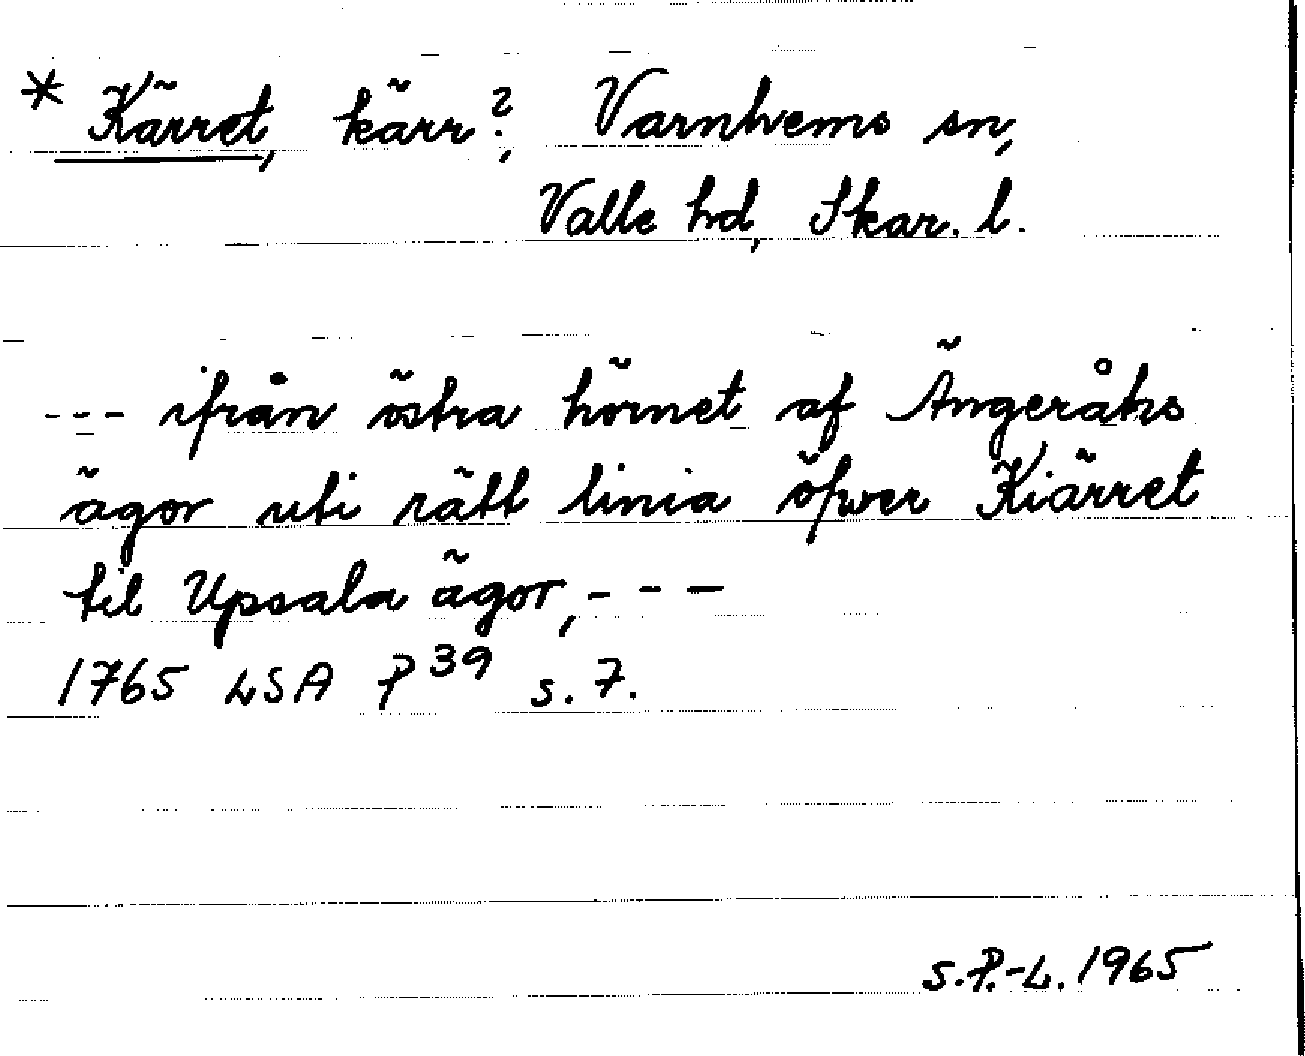 * Kärret, kärr?, Varnhems sn,
Valle hd, Skar. l.
--- ifrån östra hörnet af Ängeråhs
ägor uti rätt linia öfwer Kiärret
til Upsala ägor, ---
1765 LSA P 39 s. 7.
S.P.-L. 1965